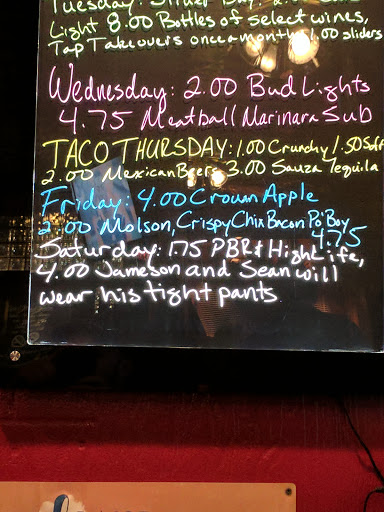 Tuesday: Slider Day!
Light 8.00 Bottles of select wines,
Tap Takeovers once a month 1.00 sliders
Wednesday: 2.00 Bud Lights
4.75 Meatball Marinara Sub
TACO THURSDAY: 1.00 Crunchy 1.50 Soft
2.00 Mexican Beers 3.00 Sauza Tequila
Friday: 4.00 Crown Apple
2.00 Molson, Crispy Chix Bacon Po' Boy
4.75
Saturday: 1.75 PBR & High Life,
4.00 Jameson and Sean will
wear his tight pants